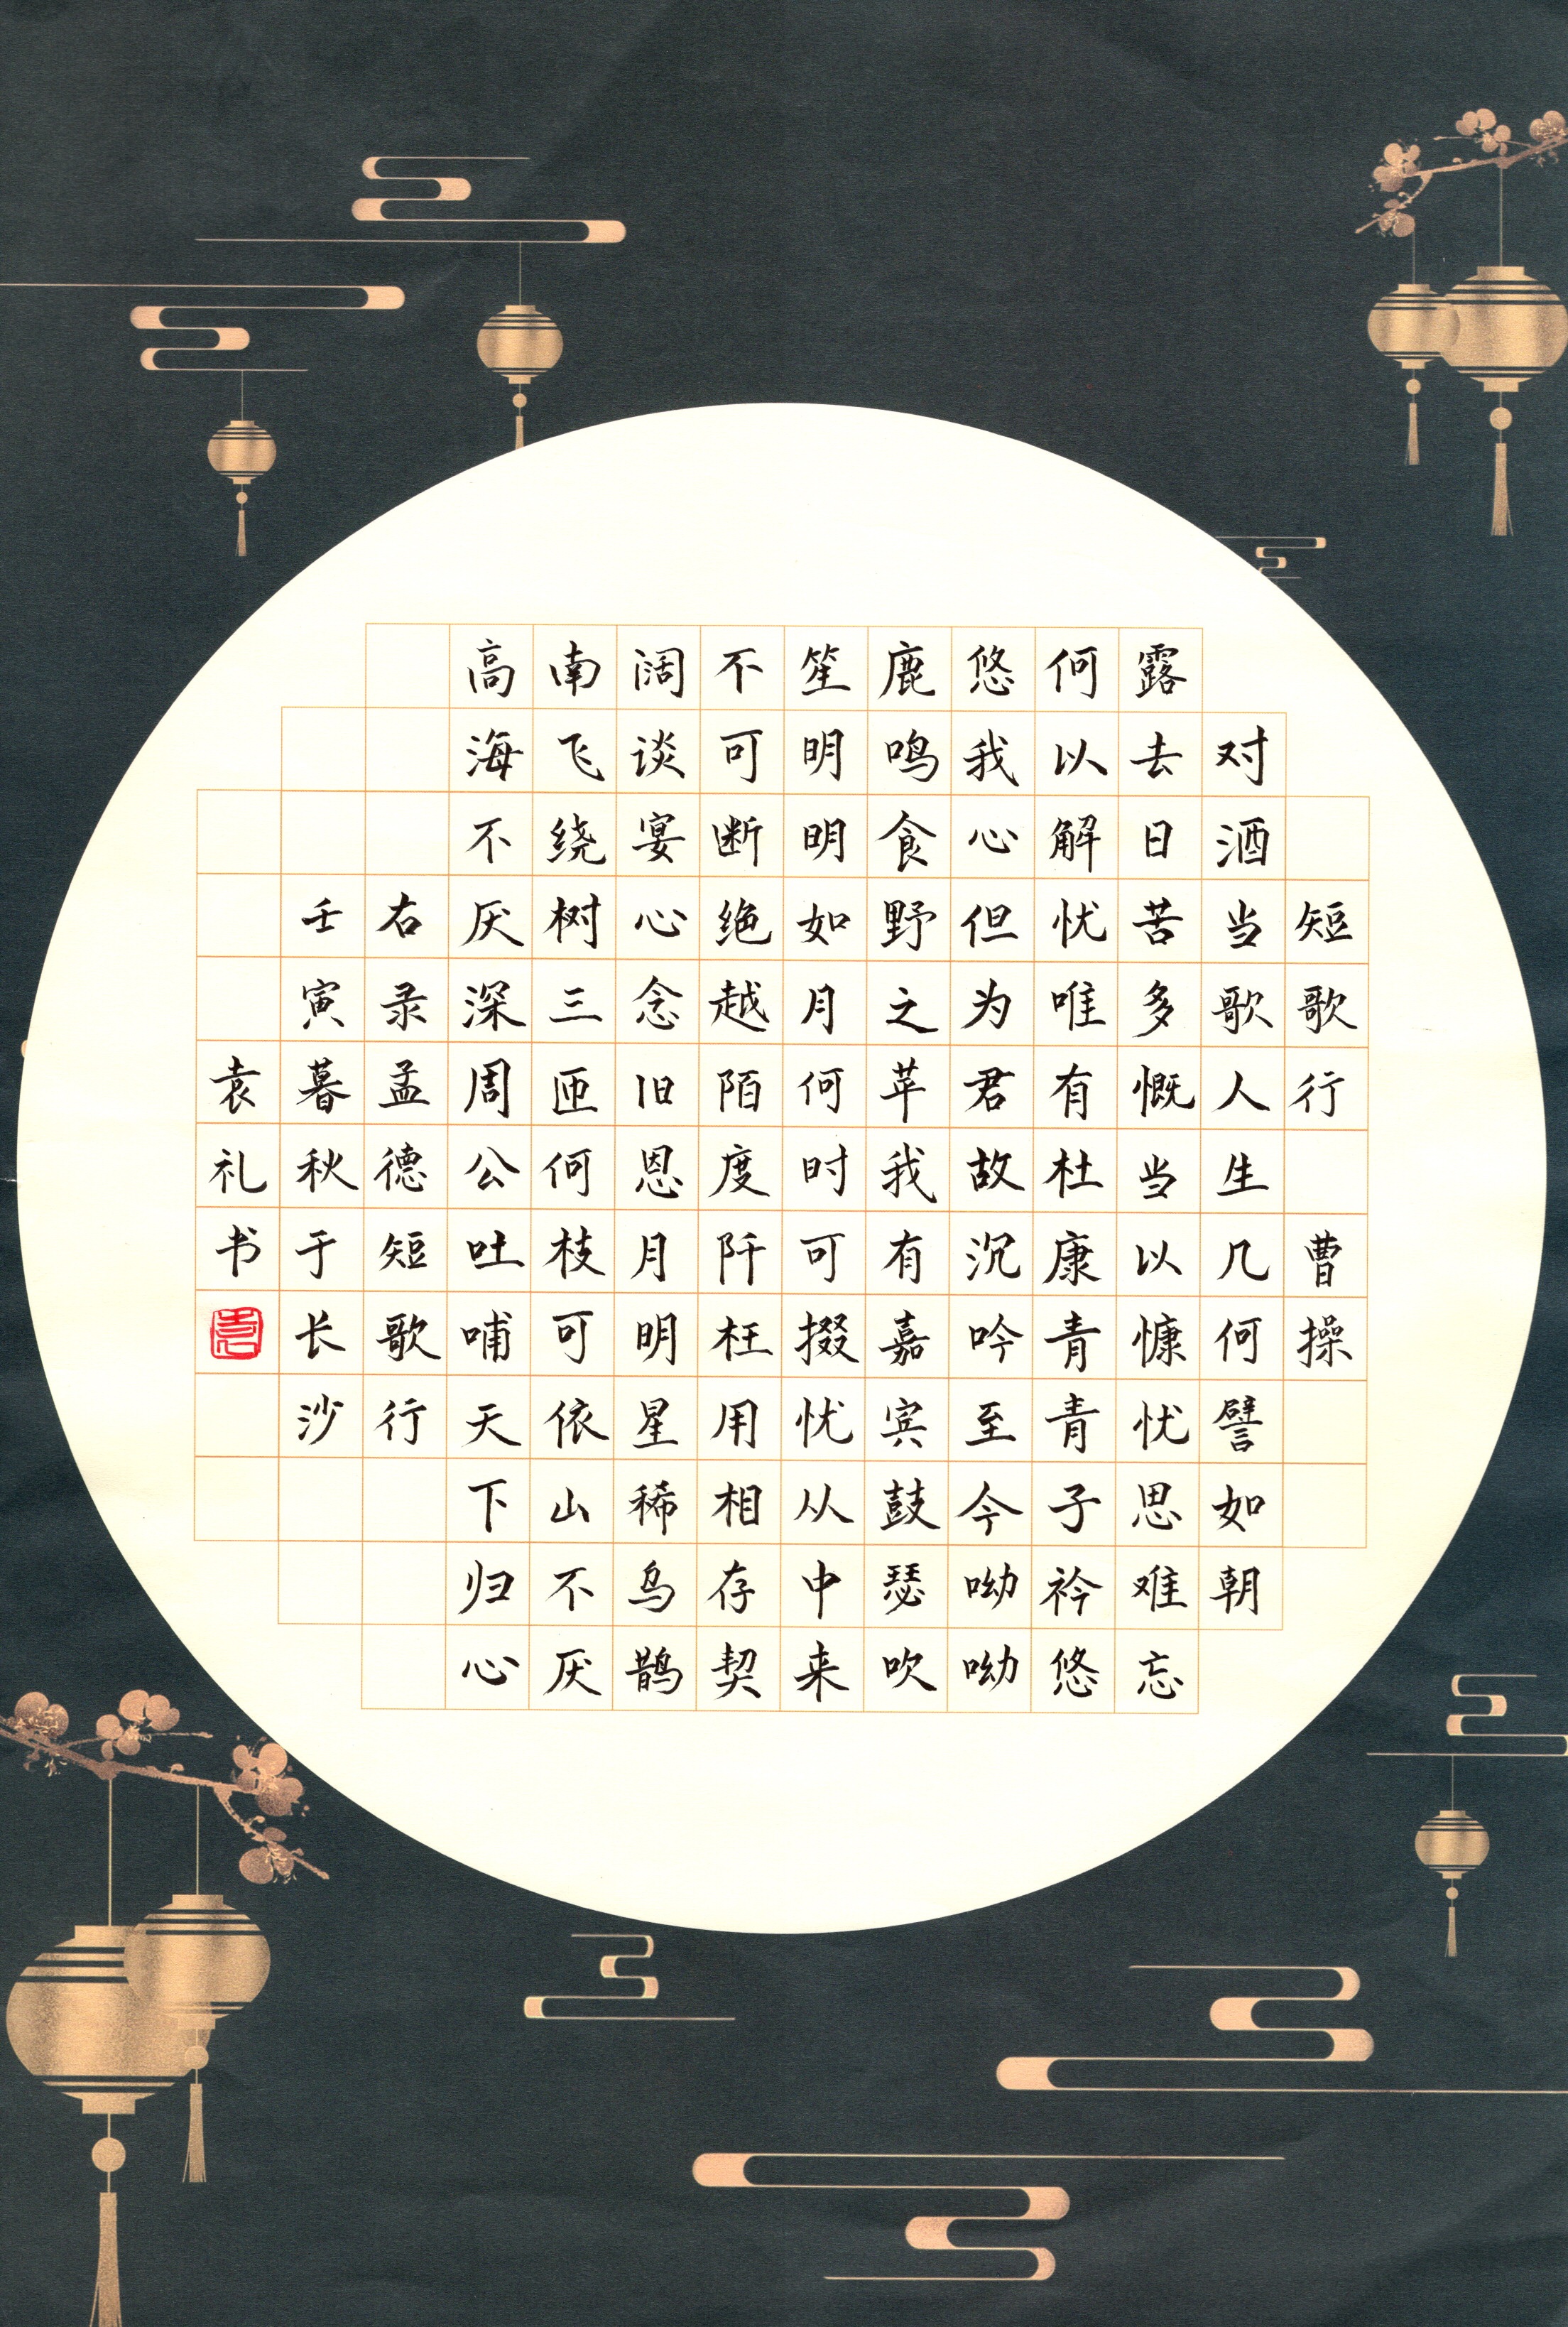 短歌行 曹操
对酒当歌人生几何譬如朝
露去日苦多慨当以慷忧思难忘
何以解忧唯有杜康青青子衿悠
悠我心但为君故沉吟至今呦呦
鹿鸣食野之苹我有嘉宾鼓瑟吹
笙明明如月何时可掇忧从中来
不可断绝越陌度阡枉用相存契
阔谈宴心念旧恩月明星稀乌鹊
南飞绕树三匝何枝可依山不厌
高海不厌深周公吐哺天下归心
右录孟德短歌行
壬寅暮秋于长沙
袁礼书